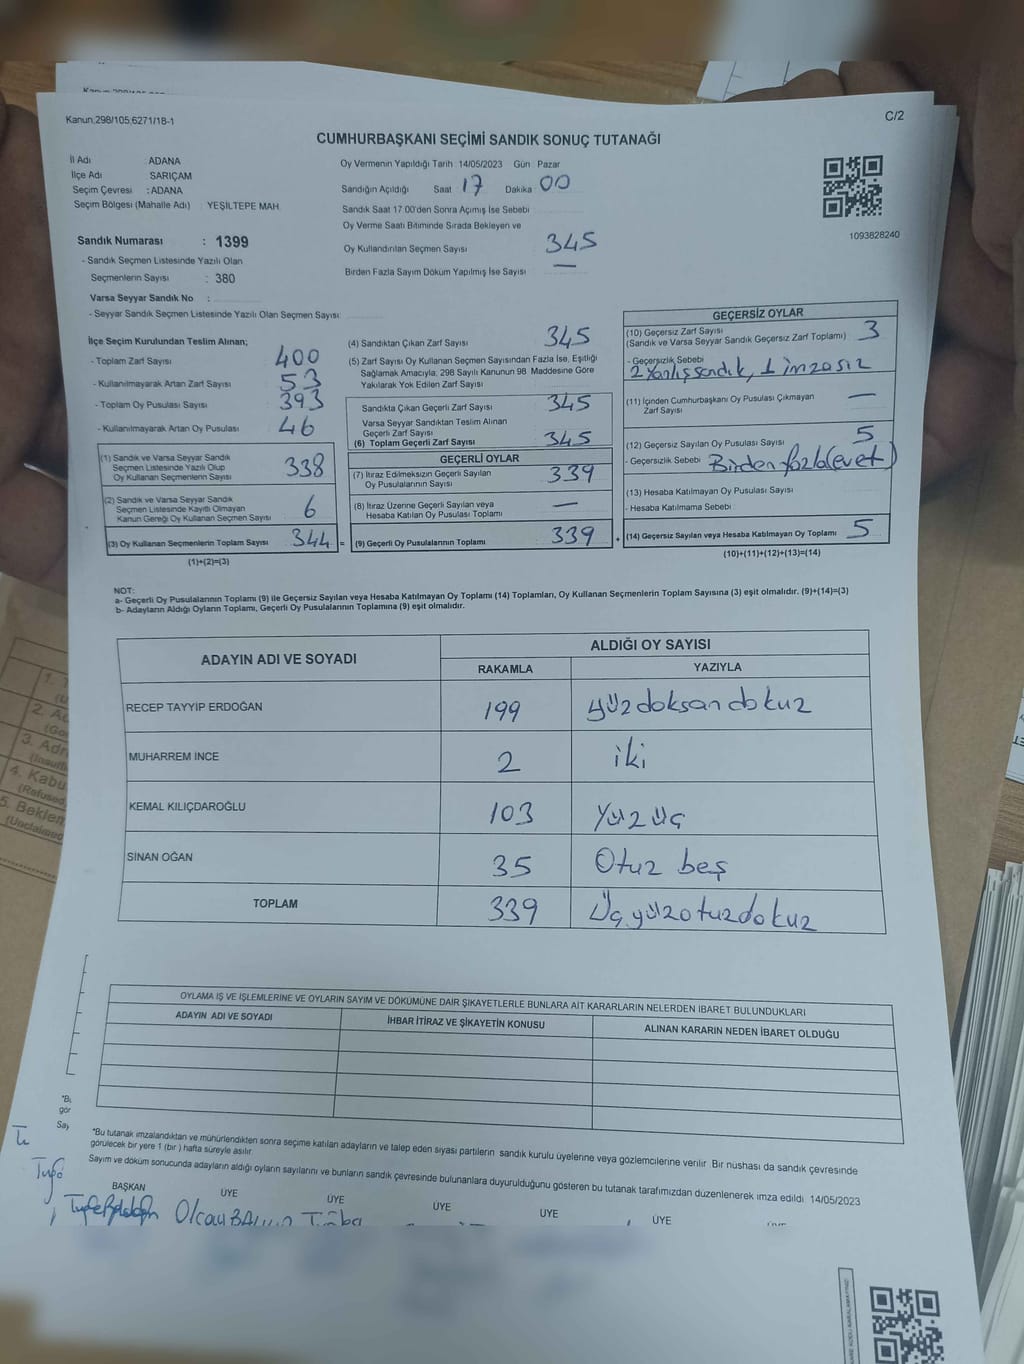 Kanun;298/105;6271/18-1
C/2
CUMHURBAŞKANI SEÇİMİ SANDIK SONUÇ TUTANAĞI
İl Adı : ADANA
İlçe Adı : SARIÇAM
Seçim Çevresi : ADANA
Seçim Bölgesi (Mahalle Adı) : YEŞİLTEPE MAH.
Oy Vermenin Yapıldığı Tarih 14/05/2023 Gün Pazar
Sandığın Açıldığı Saat 17 Dakika 00
Sandık Saat 17.00'den Sonra Açılmış İse Sebebi
Oy Verme Saati Bitiminde Sırada Bekleyen ve
Oy Kullandırılan Seçmen Sayısı 345
Birden Fazla Sayım Döküm Yapılmış İse Sayısı —
1093828240
Sandık Numarası : 1399
- Sandık Seçmen Listesinde Yazılı Olan
Seçmenlerin Sayısı : 380
Varsa Seyyar Sandık No :
- Seyyar Sandık Seçmen Listesinde Yazılı Olan Seçmen Sayısı:
İlçe Seçim Kurulundan Teslim Alınan;
- Toplam Zarf Sayısı 400
- Kullanılmayarak Artan Zarf Sayısı 53
- Toplam Oy Pusulası Sayısı 393
- Kullanılmayarak Artan Oy Pusulası 46
(1) Sandık ve Varsa Seyyar Sandık
Seçmen Listesinde Yazılı Olup
Oy Kullanan Seçmenlerin Sayısı 338
(2) Sandık ve Varsa Seyyar Sandık
Seçmen Listesinde Kayıtlı Olmayan
Kanun Gereği Oy Kullanan Seçmen Sayısı 6
(3) Oy Kullanan Seçmenlerin Toplam Sayısı 344 =
(1)+(2)=(3)
(4) Sandıktan Çıkan Zarf Sayısı 345
(5) Zarf Sayısı Oy Kullanan Seçmen Sayısından Fazla İse, Eşitliği
Sağlamak Amacıyla, 298 Sayılı Kanunun 98. Maddesine Göre
Yakılarak Yok Edilen Zarf Sayısı
Sandıkta Çıkan Geçerli Zarf Sayısı 345
Varsa Seyyar Sandıktan Teslim Alınan
Geçerli Zarf Sayısı
(6) Toplam Geçerli Zarf Sayısı 345
GEÇERLİ OYLAR
(7) İtiraz Edilmeksizin Geçerli Sayılan
Oy Pusulalarının Sayısı 339
(8) İtiraz Üzerine Geçerli Sayılan veya
Hesaba Katılan Oy Pusulası Toplamı —
(9) Geçerli Oy Pusulalarının Toplamı 339 +
GEÇERSİZ OYLAR
(10) Geçersiz Zarf Sayısı
(Sandık ve Varsa Seyyar Sandık Geçersiz Zarf Toplamı) 3
- Geçersizlik Sebebi
2 Yanlış sandık, 1 imzasız
(11) İçinden Cumhurbaşkanı Oy Pusulası Çıkmayan
Zarf Sayısı —
(12) Geçersiz Sayılan Oy Pusulası Sayısı 5
- Geçersizlik Sebebi Birden fazla(evet)
(13) Hesaba Katılmayan Oy Pusulası Sayısı
- Hesaba Katılmama Sebebi
(14) Geçersiz Sayılan veya Hesaba Katılmayan Oy Toplamı 5
(10)+(11)+(12)+(13)=(14)
NOT:
a- Geçerli Oy Pusulalarının Toplamı (9) ile Geçersiz Sayılan veya Hesaba Katılmayan Oy Toplamı (14) Toplamları, Oy Kullanan Seçmenlerin Toplam Sayısına (3) eşit olmalıdır. (9)+(14)=(3)
b- Adayların Aldığı Oyların Toplamı, Geçerli Oy Pusulalarının Toplamına (9) eşit olmalıdır.
ADAYIN ADI VE SOYADI
ALDIĞI OY SAYISI
RAKAMLA YAZIYLA
RECEP TAYYİP ERDOĞAN 199 yüzdoksandokuz
MUHARREM İNCE 2 iki
KEMAL KILIÇDAROĞLU 103 Yüz üç
SİNAN OĞAN 35 Otuz beş
TOPLAM 339 Üçyüzotuzdokuz
OYLAMA İŞ VE İŞLEMLERİNE VE OYLARIN SAYIM VE DÖKÜMÜNE DAİR ŞİKAYETLERLE BUNLARA AİT KARARLARIN NELERDEN İBARET BULUNDUKLARI
ADAYIN ADI VE SOYADI İHBAR İTİRAZ VE ŞİKAYETİN KONUSU ALINAN KARARIN NEDEN İBARET OLDUĞU
*Bu tutanak imzalandıktan ve mühürlendikten sonra seçime katılan adayların ve talep eden siyasi partilerin sandık kurulu üyelerine veya gözlemcilerine verilir. Bir nushası da sandık çevresinde
görülecek bir yere 1 (bir) hafta süreyle asılır.
Sayım ve döküm sonucunda adayların aldığı oyların sayılarını ve bunların sandık çevresinde bulunanlara duyurulduğunu gösteren bu tutanak tarafımızdan düzenlenerek imza edildi. 14/05/2023
BAŞKAN ÜYE ÜYE ÜYE ÜYE ÜYE
1. T
3. Adr
4. Kabu
(Refused
5. Beklem
(Unclaimed